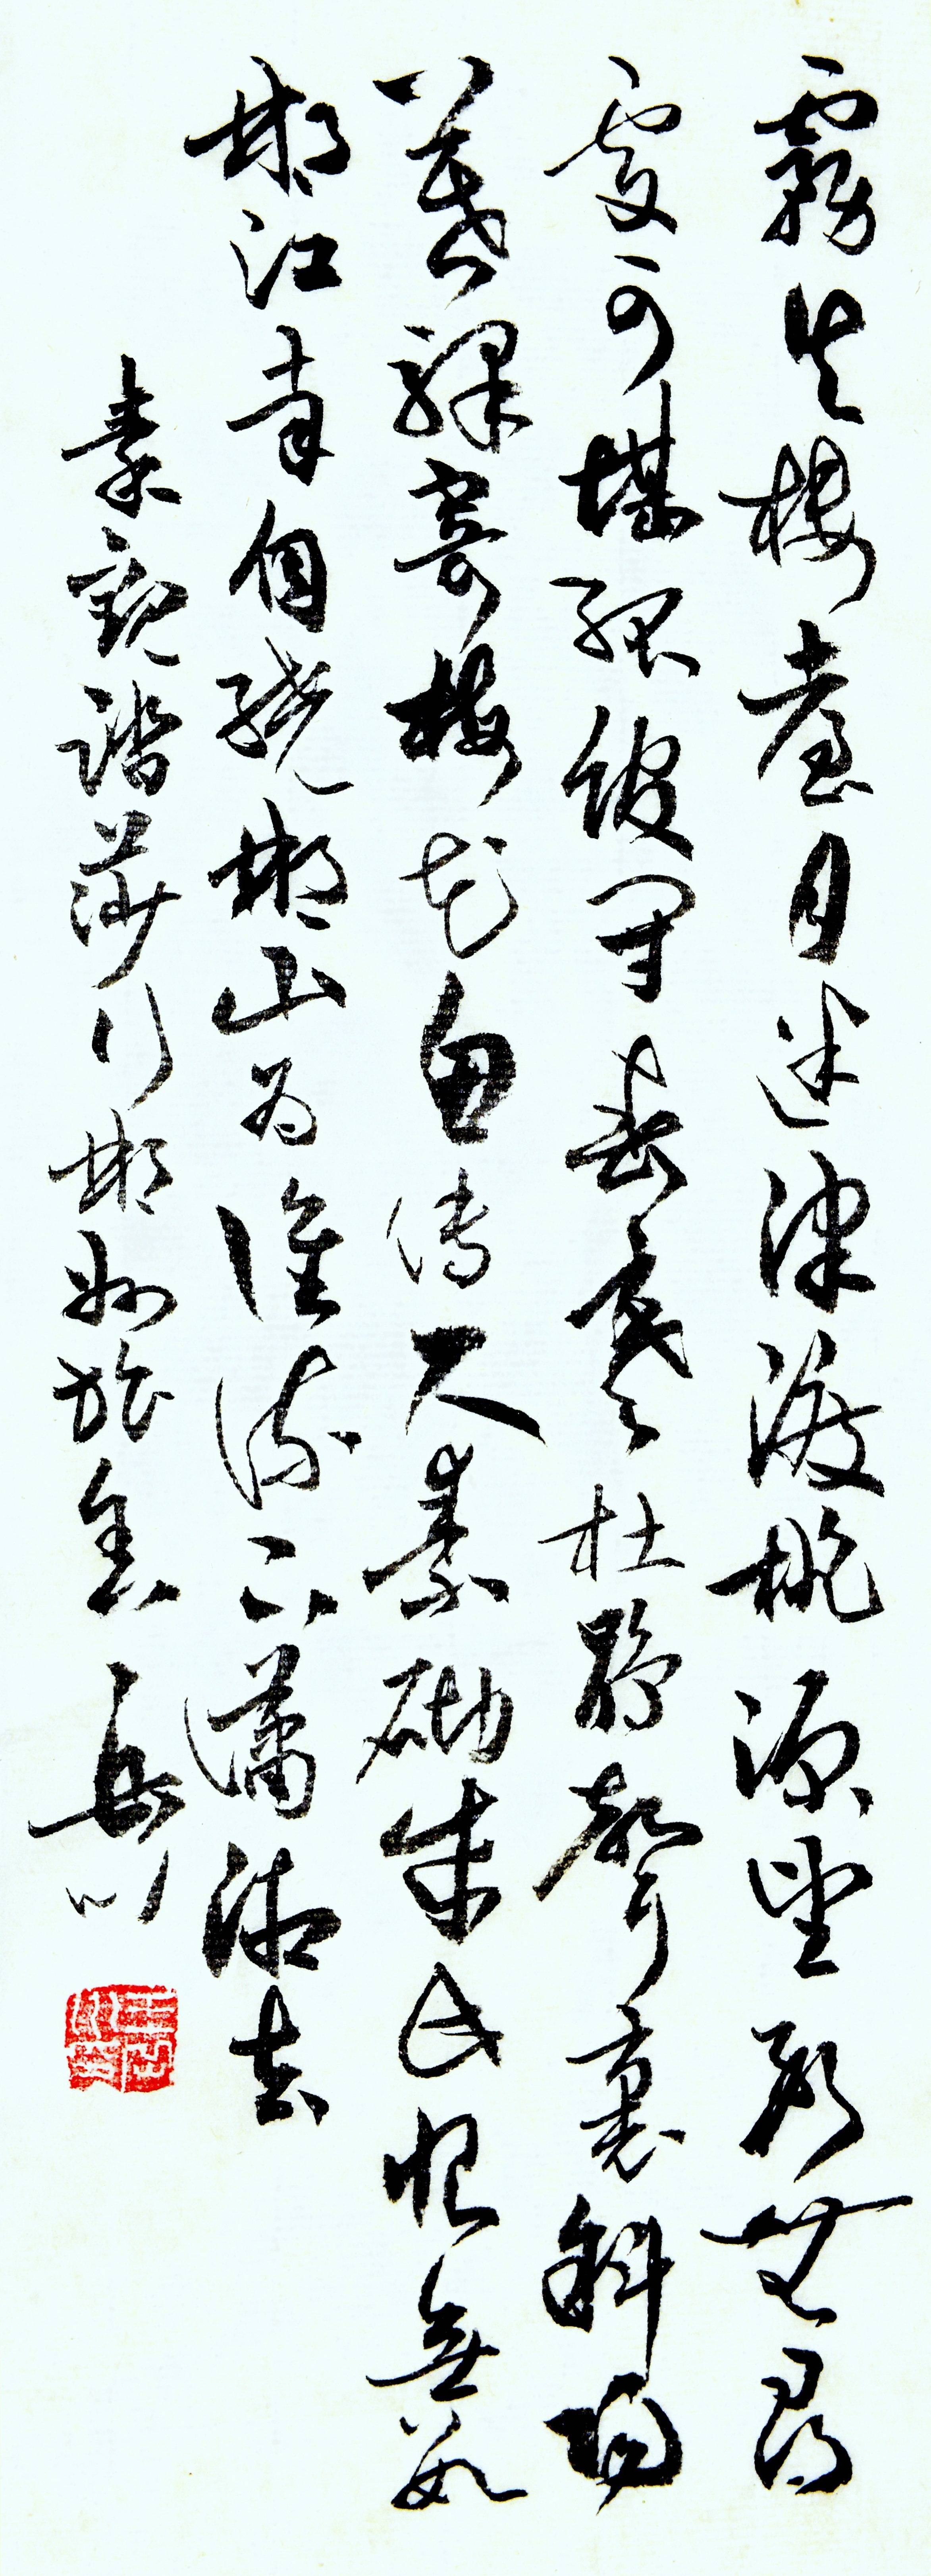 霧失樓臺月迷津渡桃源望斷無尋
處可堪孤館閉春寒杜鵑聲裏斜陽
暮驛寄梅花魚傳尺素砌成此恨無數
郴江幸自繞郴山為誰流下瀟湘去
秦觀踏莎行郴州旅舍